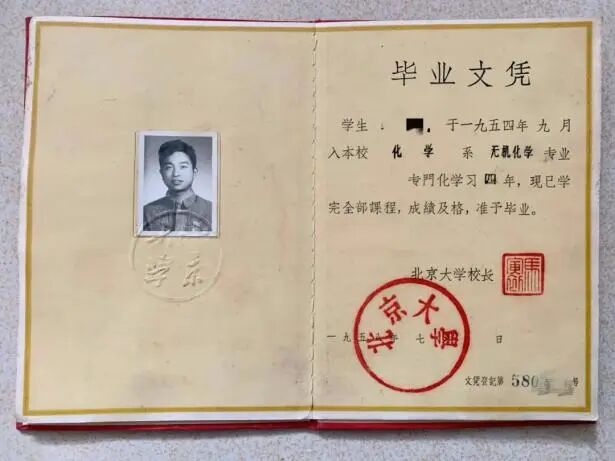 毕业文凭
学生 于一九五四年九月
入本校 化学 系 无机化学 专业
专門化学习四年，现已学
完全部課程，成績及格，准予毕业。
北京大学校长
马寅初
北京大學
一九五八年七 日
文凭登記第580 号
北京
大学